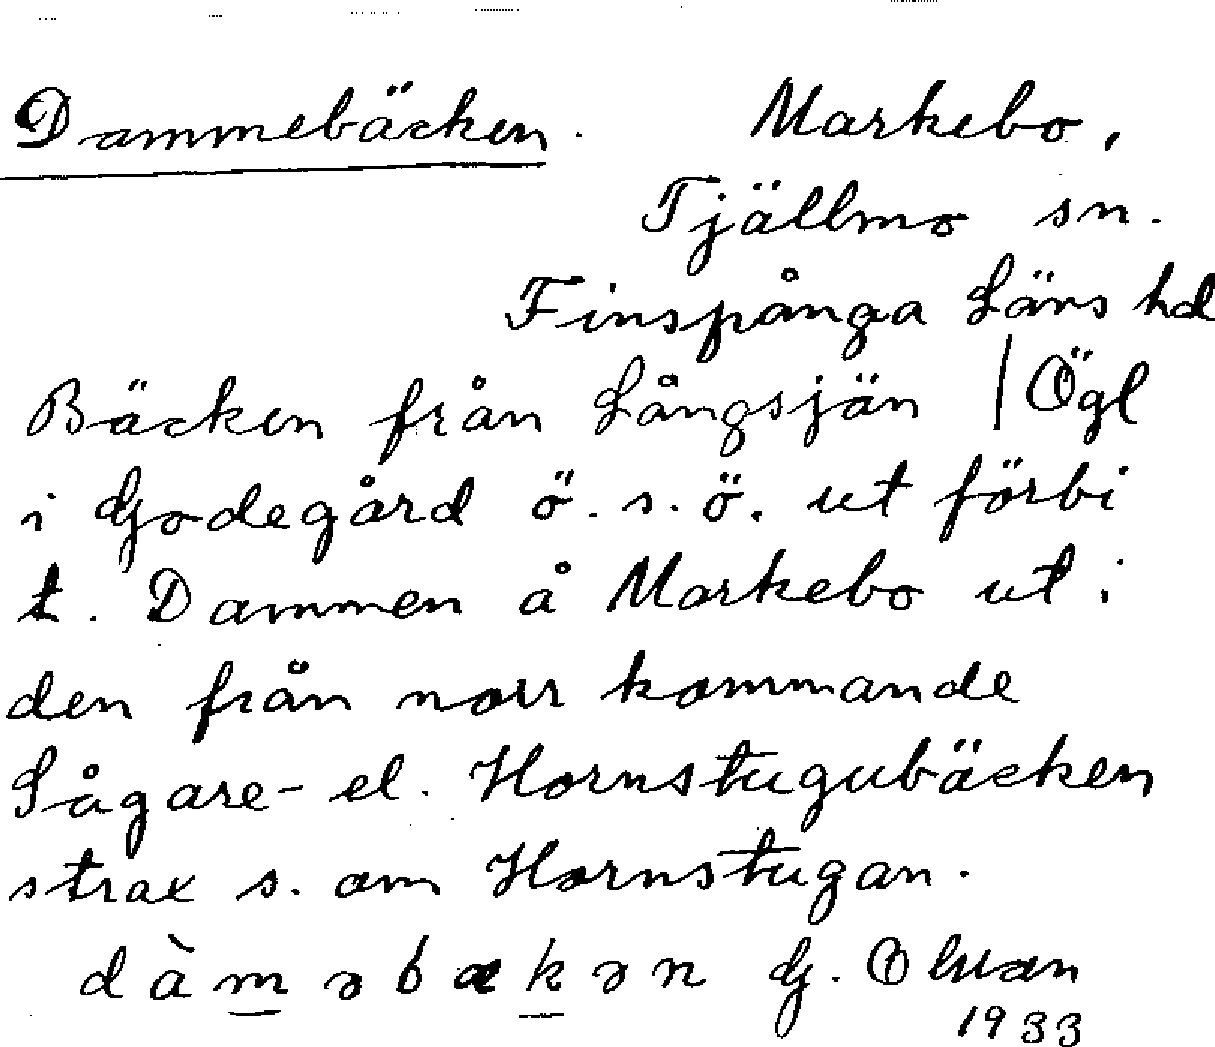 Dammebäcken. Markebo,
Tjällmo sn.
Finspånga Läns hd
Bäcken från Långsjön | Ögl
i Godegård ö. s. ö. ut förbi
t. Dammen å Markebo ut i
den från norr kommande
Sågare- el. Hornstugubäcken
strax s. om Hornstugan.
dàməbækən G. Olson
1933